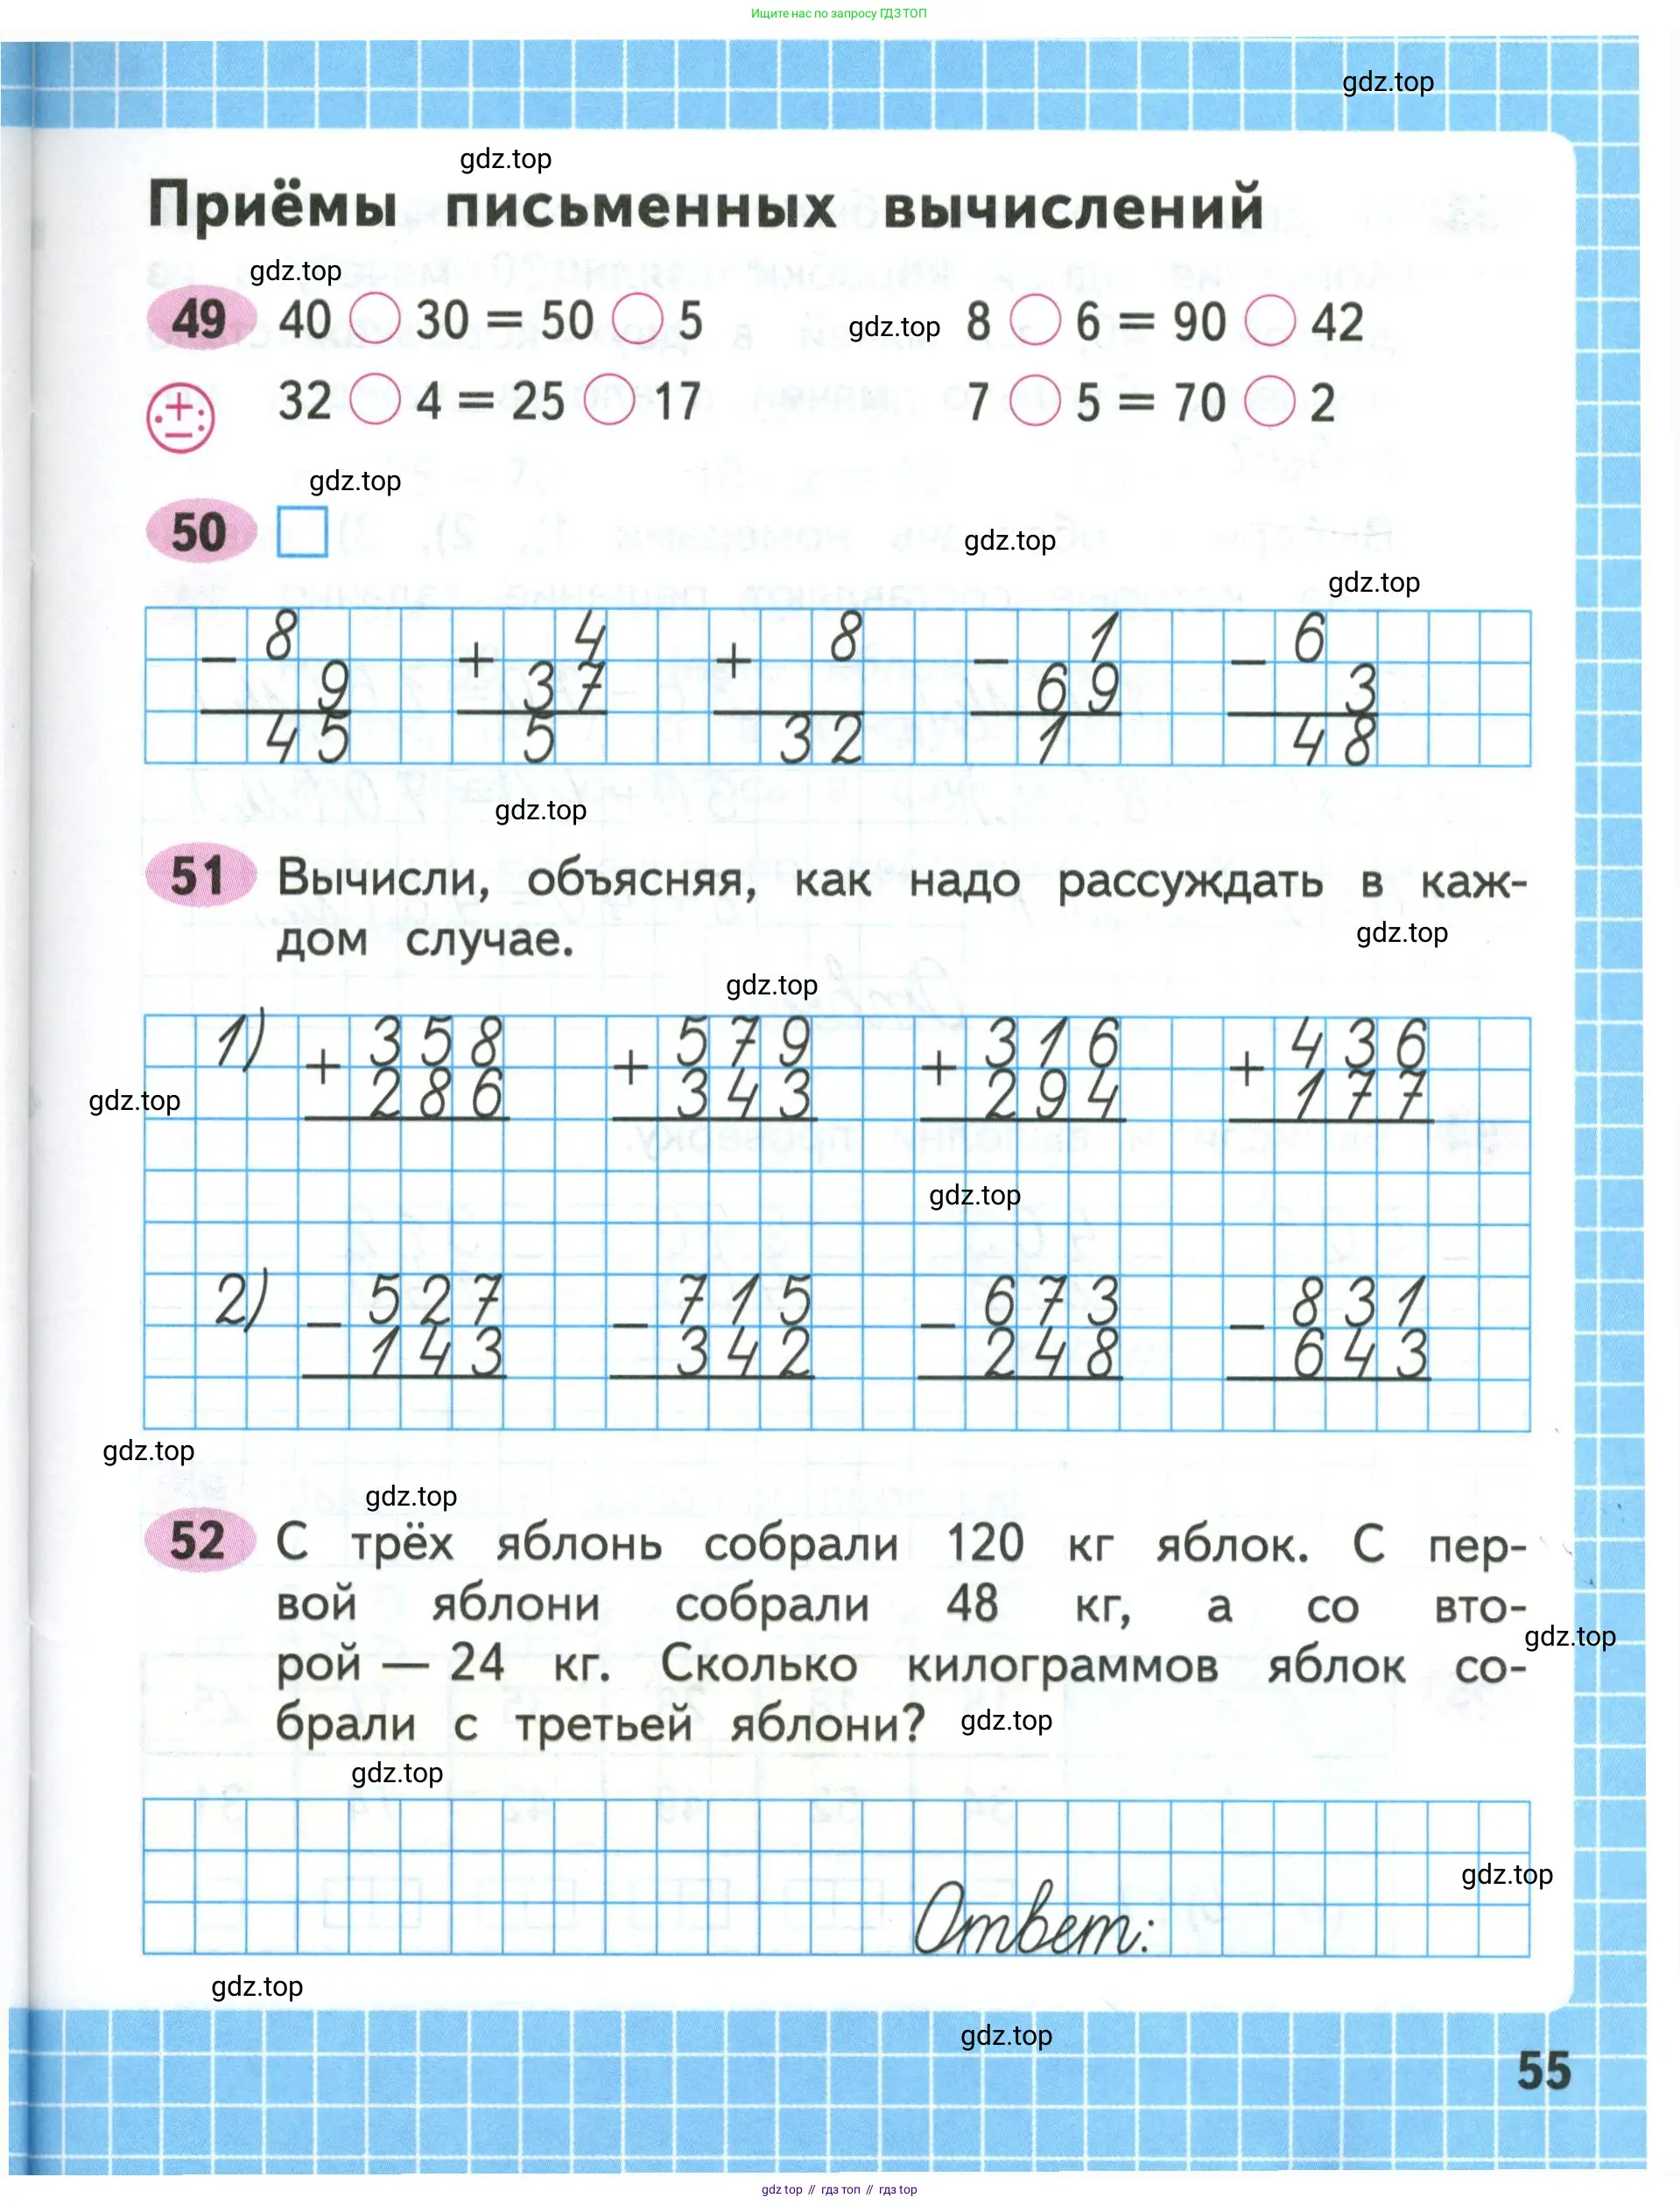 Ищите нас по запросу ГДЗ ТОП
gdz.top
gdz.top
Приёмы письменных вычислений
gdz.top
49 40 ○ 30 = 50 ○ 5 gdz.top 8 ○ 6 = 90 ○ 42
32 ○ 4 = 25 ○ 17 7 ○ 5 = 70 ○ 2
gdz.top
50 □
gdz.top
gdz.top
− 8 + 4 + 8 − 1 − 6
9 37 69 3
45 5 32 1 48
gdz.top
51 Вычисли, объясняя, как надо рассуждать в каж-
дом случае.
gdz.top
gdz.top
1) + 358 + 579 + 316 + 436
286 343 294 177
gdz.top
gdz.top
2) − 527 − 715 − 673 − 831
143 342 248 643
gdz.top
gdz.top
52 С трёх яблонь собрали 120 кг яблок. С пер-
вой яблони собрали 48 кг, а со вто-
gdz.top
рой — 24 кг. Сколько килограммов яблок со-
брали с третьей яблони? gdz.top
gdz.top
gdz.top
Ответ:
gdz.top
gdz.top
55
gdz.top // гдз топ // гдз.top